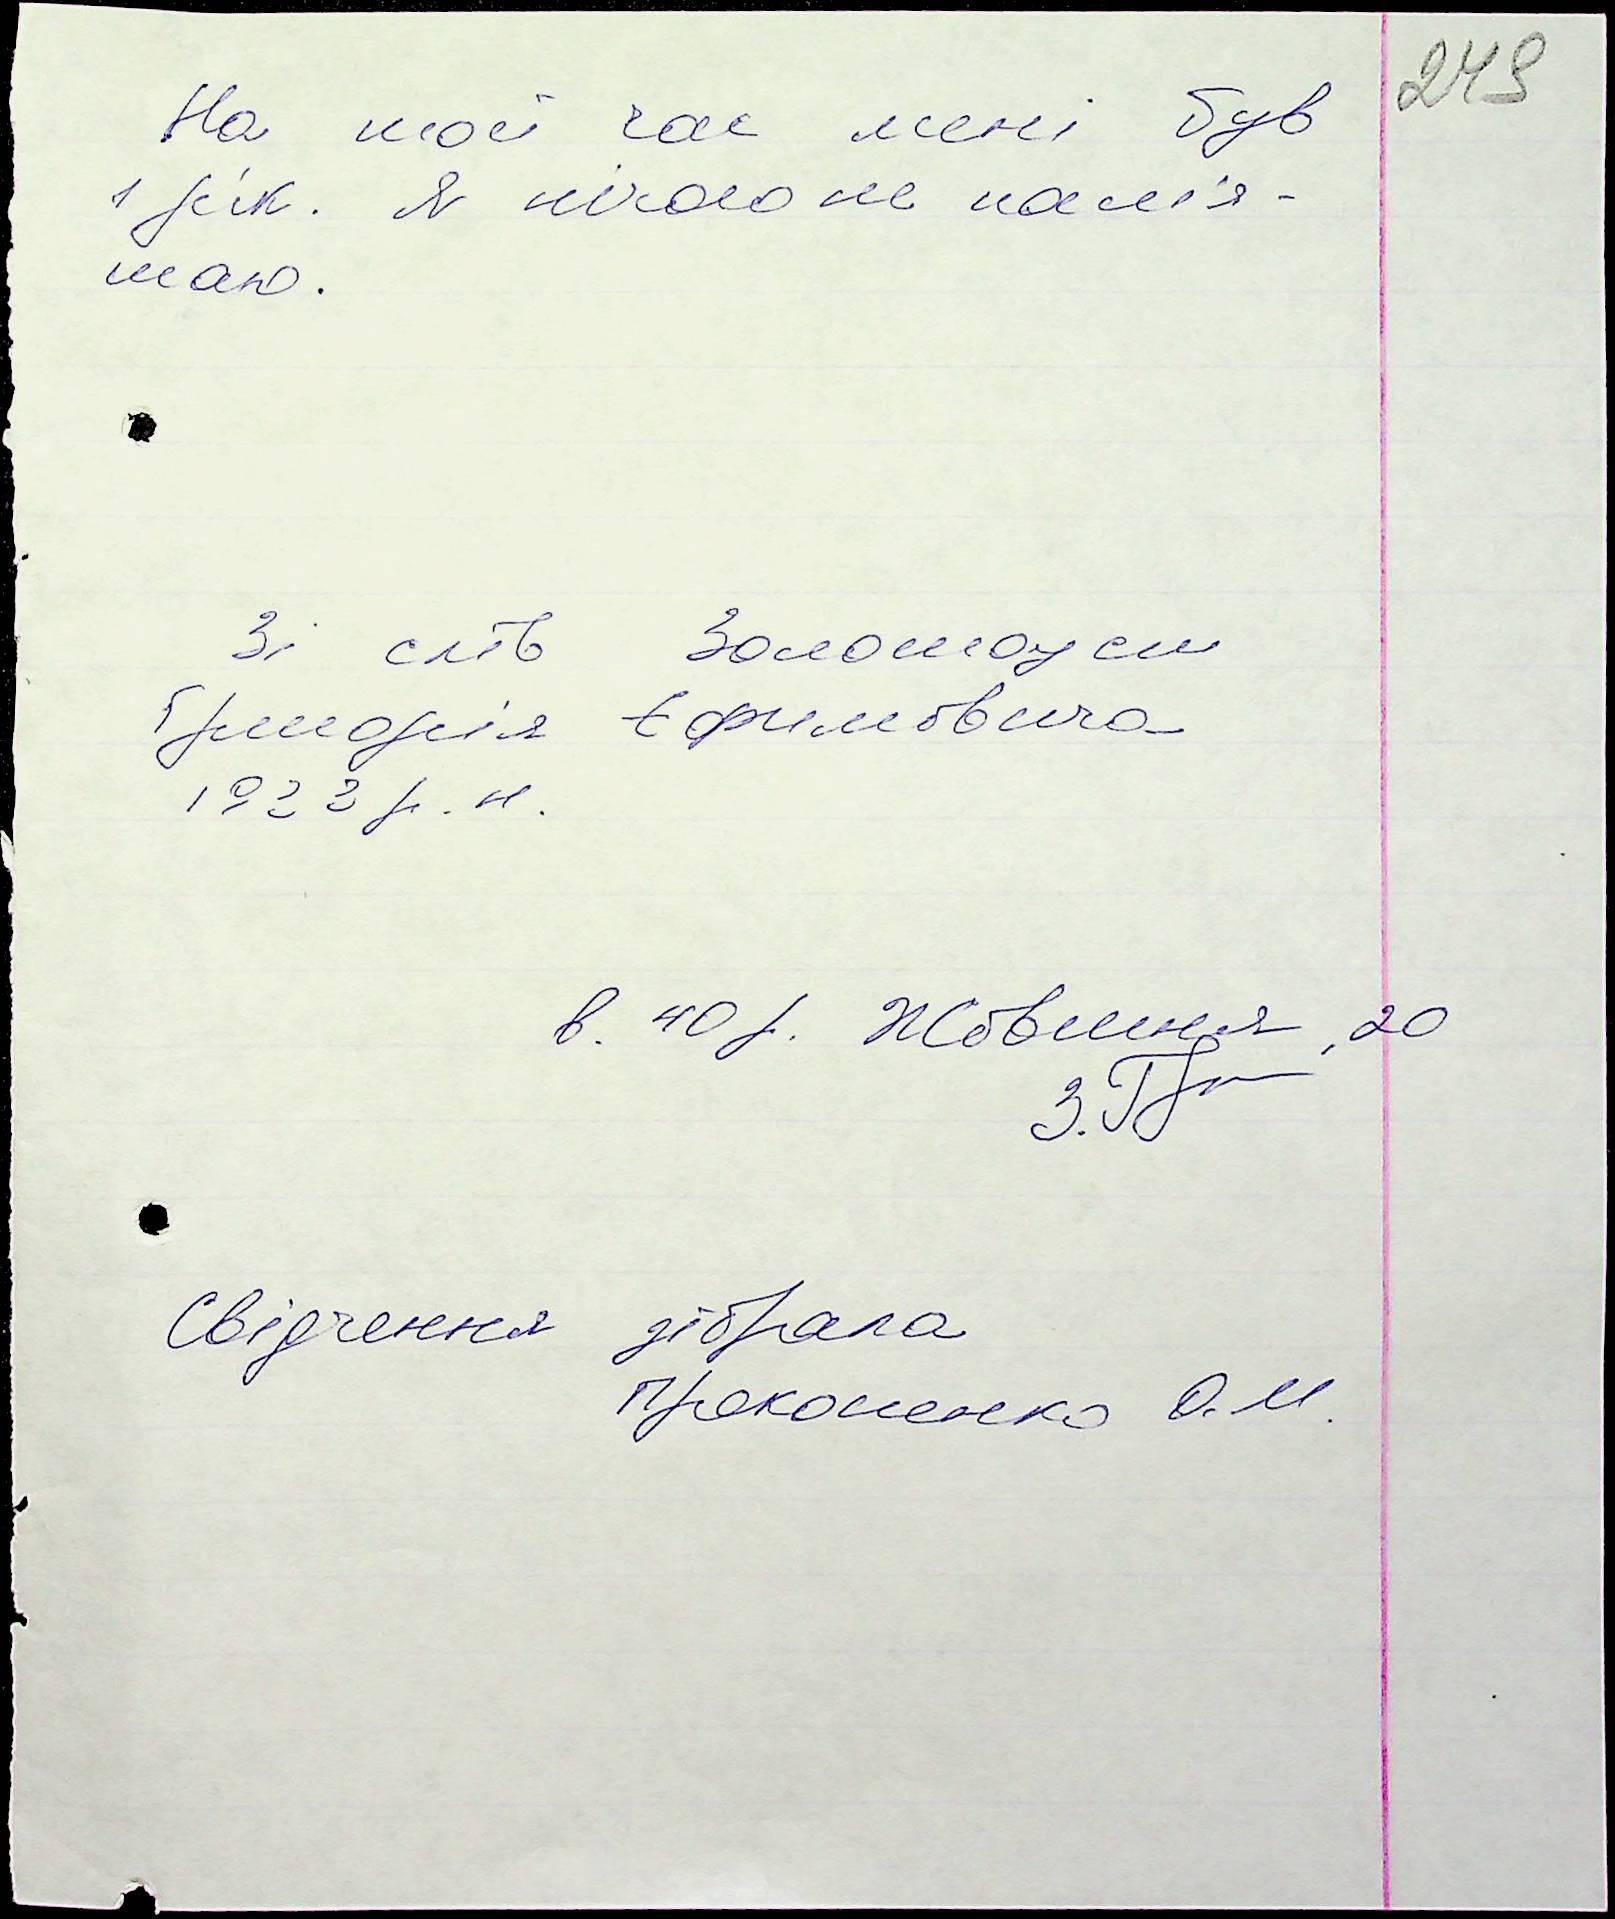 249
На той час мені був
1 рік. Я нічого не пам'я-
таю.
Зі слів Золотоуст
Григорія Єфимовича
1932 р. н.
в. 40 р. Жовтня, 20
З.Гр
Свідчення зібрала
Прокопенко О.М.